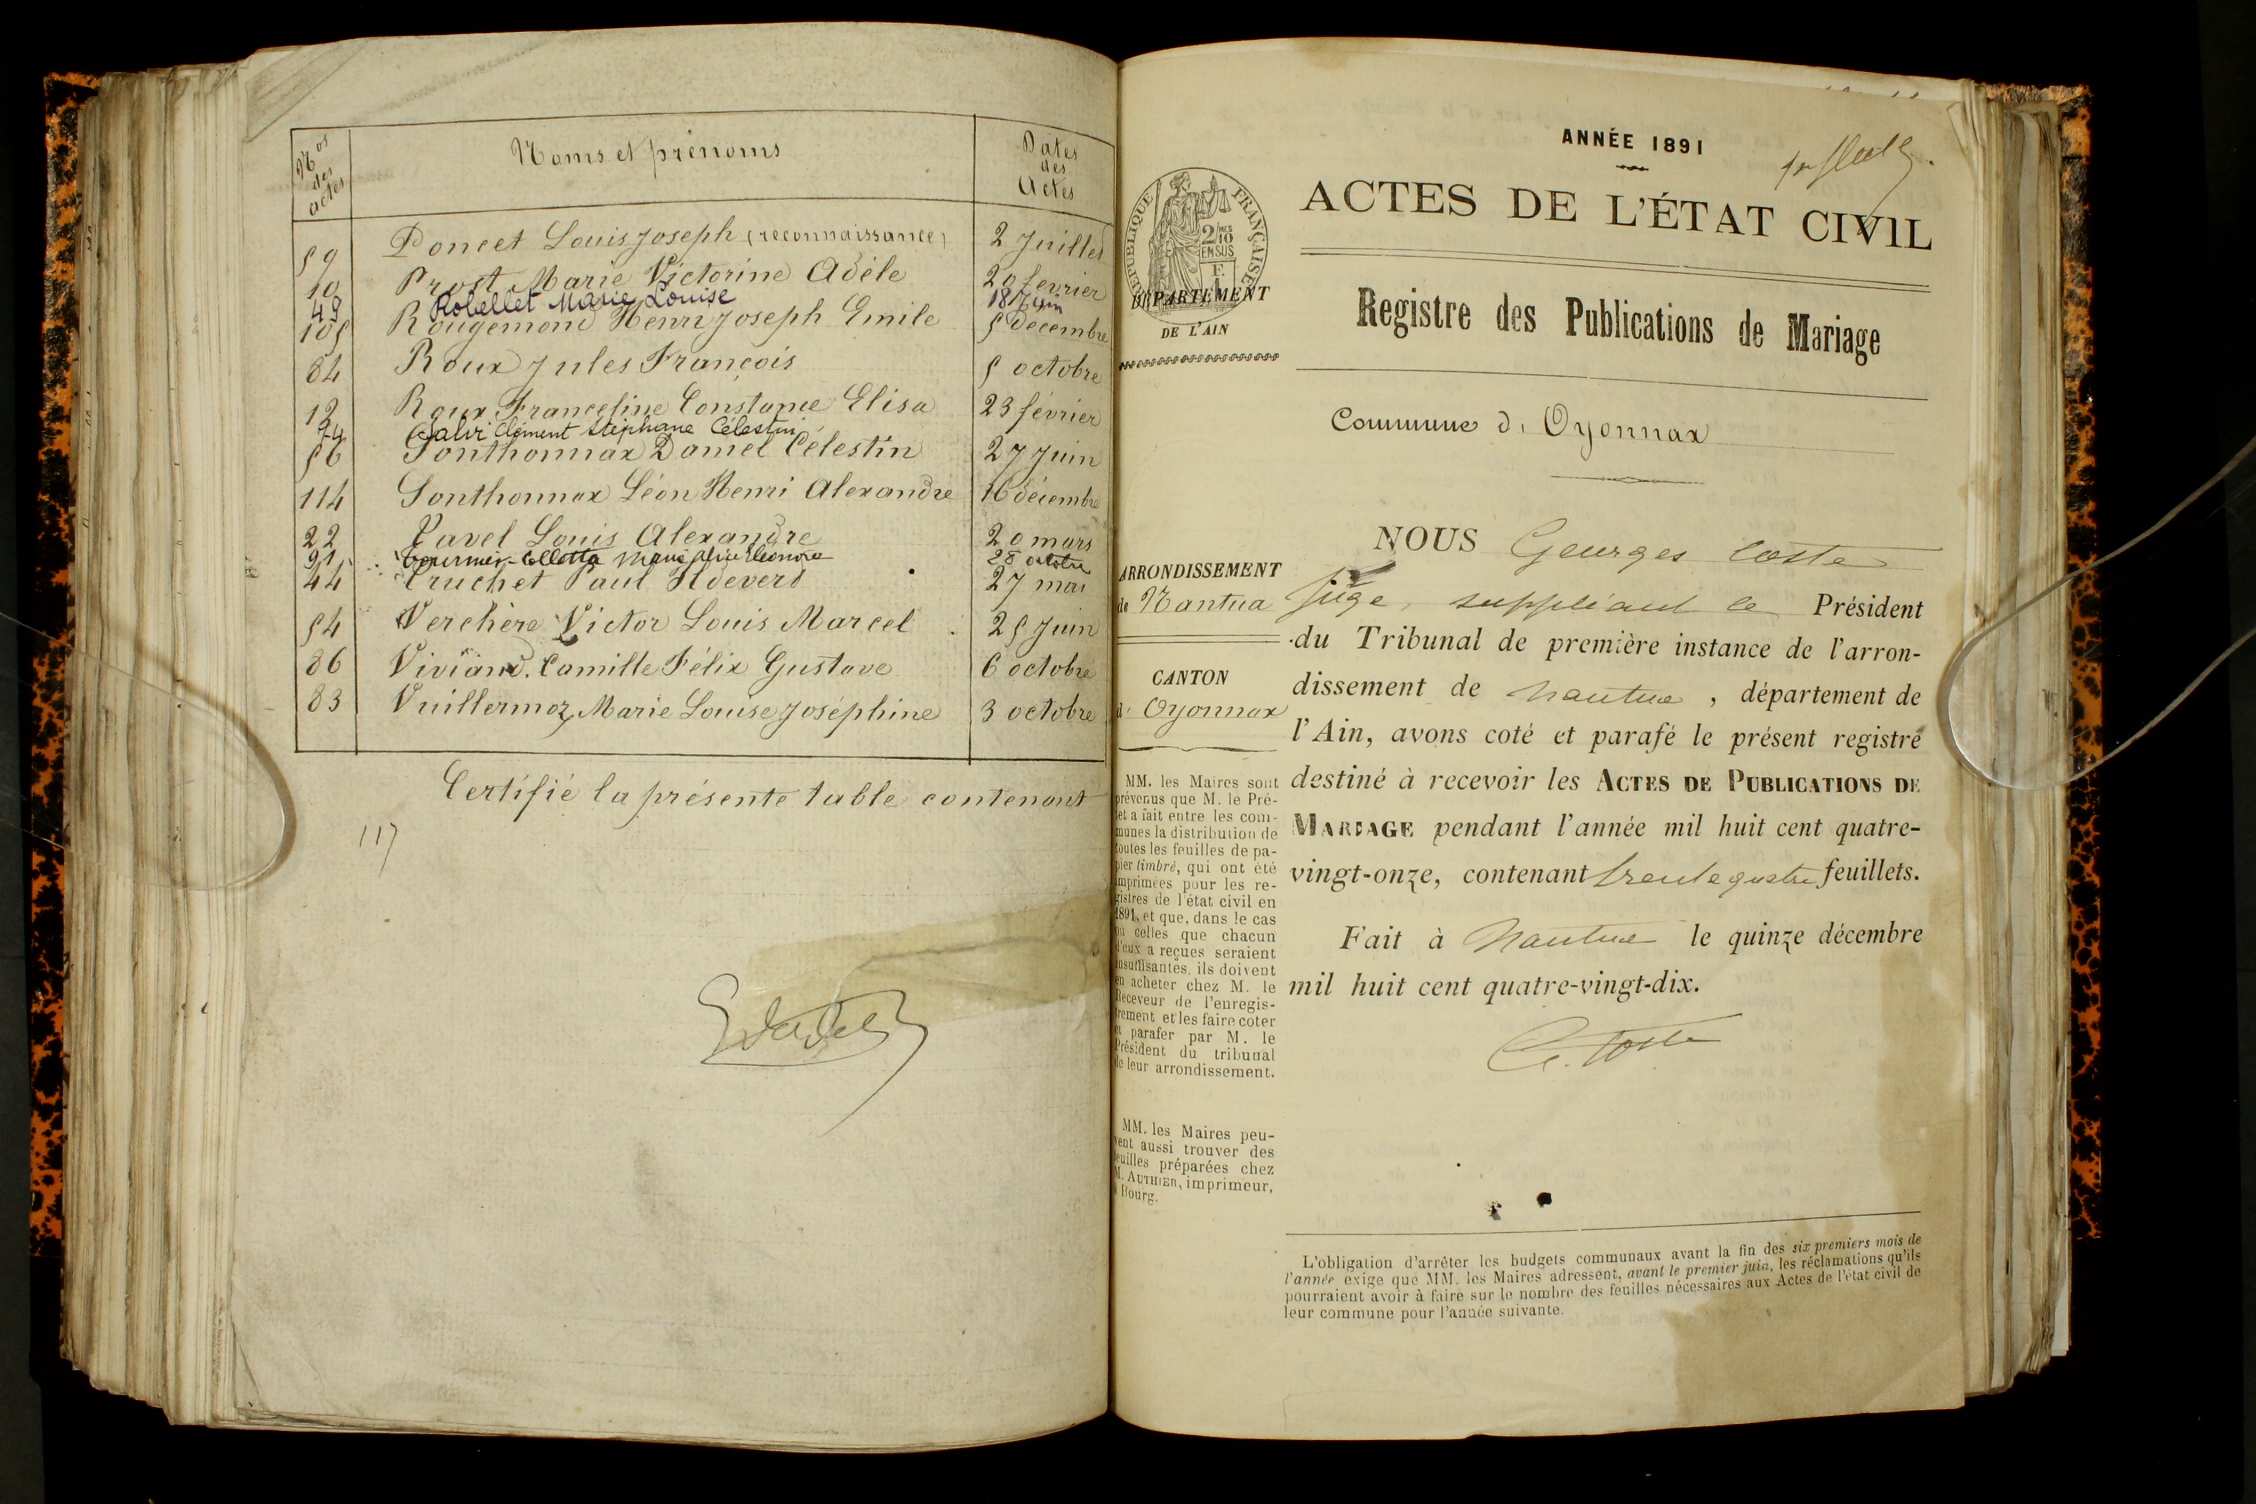 Nos des actes
Noms et prénoms
Dates des Actes
59 Poncet Louis Joseph (reconnaissance) 2 Juillet
10 Prost Marie Victorine Adèle 20 fevrier
49 Robellet Marie Louise 18 Juin
105 Rougemond Henri Joseph Emile 5 décembre
84 Roux Jules François 5 octobre
12 Roux Franceline Constance Elisa 23 février
74 Salvi Clément Stéphane Célestin
56 Sonthonnax Daniel Célestin 27 Juin
114 Sonthonnax Léon Henri Alexandre 16 décembre
22 Tavel Louis Alexandre 20 mars
91 Tournier-Colletta Marie Eléonore 28 octobre
44 Truchet Paul 27 mai
54 Verchère Victor Louis Marcel 25 Juin
86 Viviand Camille Félix Gustave 6 octobre
83 Vuillermoz Marie Louise Joséphine 3 octobre
Certifié la présente table contenant
117
ANNÉE 1891
ACTES DE L'ÉTAT CIVIL
RÉPUBLIQUE FRANÇAISE
2/10 EN SUS
DÉPARTEMENT
DE L'AIN
Registre des Publications de Mariage
Commune d' Oyonnax
ARRONDISSEMENT
de Nantua
CANTON
d' Oyonnax
MM. les Maires sont
prévenus que M. le Pré-
fet a fait entre les com-
munes la distribution de
toutes les feuilles de pa-
pier timbré, qui ont été
imprimées pour les re-
gistres de l'état civil en
1891, et que, dans le cas
où celles que chacun
d'eux a reçues seraient
insuffisantes, ils doivent
en acheter chez M. le
Receveur de l'enregis-
trement et les faire coter
et parafer par M. le
Président du tribunal
de leur arrondissement.
MM. les Maires peu-
vent aussi trouver des
feuilles préparées chez
M. AUTHIER, imprimeur,
à Bourg.
NOUS Georges Coste
Juge, suppléant le Président
du Tribunal de première instance de l'arron-
dissement de Nantua, département de
l'Ain, avons coté et parafé le présent registre
destiné à recevoir les ACTES DE PUBLICATIONS DE
MARIAGE pendant l'année mil huit cent quatre-
vingt-onze, contenant trente quatre feuillets.
Fait à Nantua le quinze décembre
mil huit cent quatre-vingt-dix.
G. Coste
L'obligation d'arrêter les budgets communaux avant la fin des six premiers mois de
l'année exige que MM. les Maires adressent, avant le premier juin, les réclamations qu'ils
pourraient avoir à faire sur le nombre des feuilles nécessaires aux Actes de l'état civil de
leur commune pour l'année suivante.